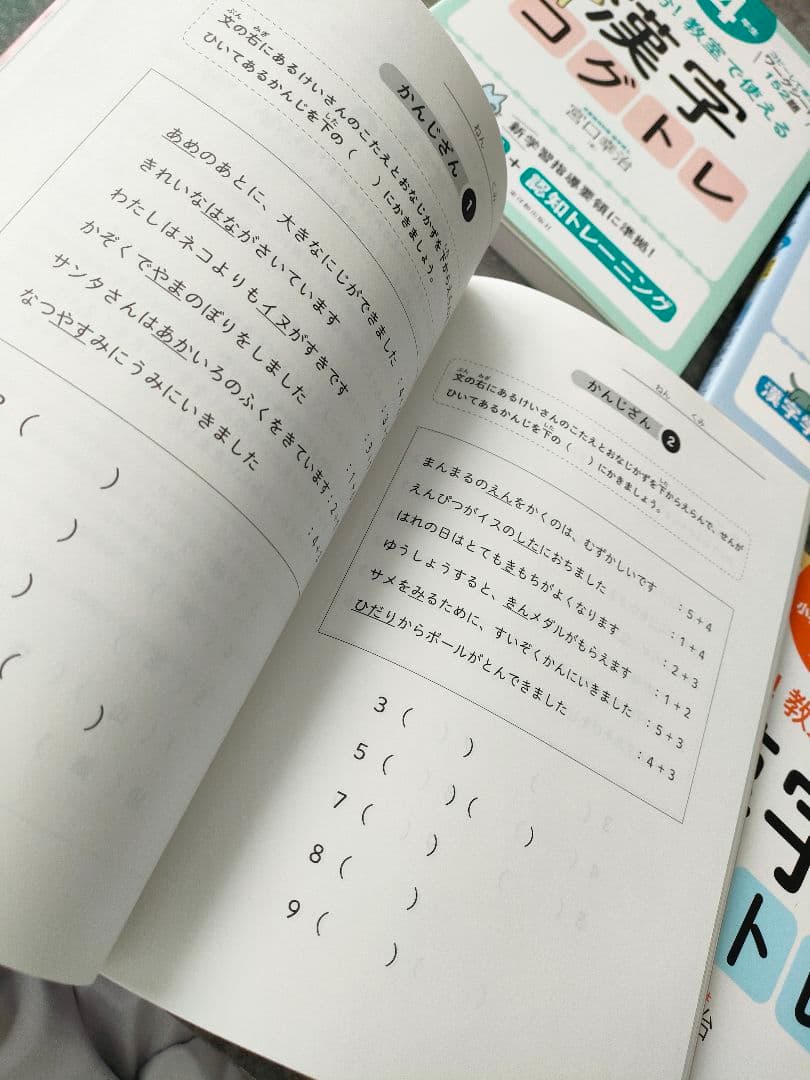 かんじざん 1
ねん くみ
文の右にあるけいさんのこたえとおなじかずを下からえら
ひいてあるかんじを下の( )にかきましょう。
あめのあとに、大きなにじができました
きれいなはながさいています
わたしはネコよりもイヌがすきです
かぞくでやまのぼりをしました
サンタさんはあかいろのふくをきています
なつやすみにうみにいきました
かんじざん 2
ねん くみ
文の右にあるけいさんのこたえとおなじかずを下からえらんで、せんが
ひいてあるかんじを下の( )にかきましょう。
まんまるのえんをかくのは、むずかしいです :5+4
えんぴつがイスのしたにおちました :1+4
はれの日はとてもきもちがよくなります :2+3
ゆうしょうすると、きんメダルがもらえます :1+2
サメをみるために、すいぞくかんにいきました :5+3
ひだりからボールがとんできました :4+3
3 ( )
5 ( )( )
7 ( )
8 ( )
9 ( )
教室で使える
漢字
コグトレ
宮口幸治
新学習指導要領に準拠!
+認知トレーニング
152題
漢字学